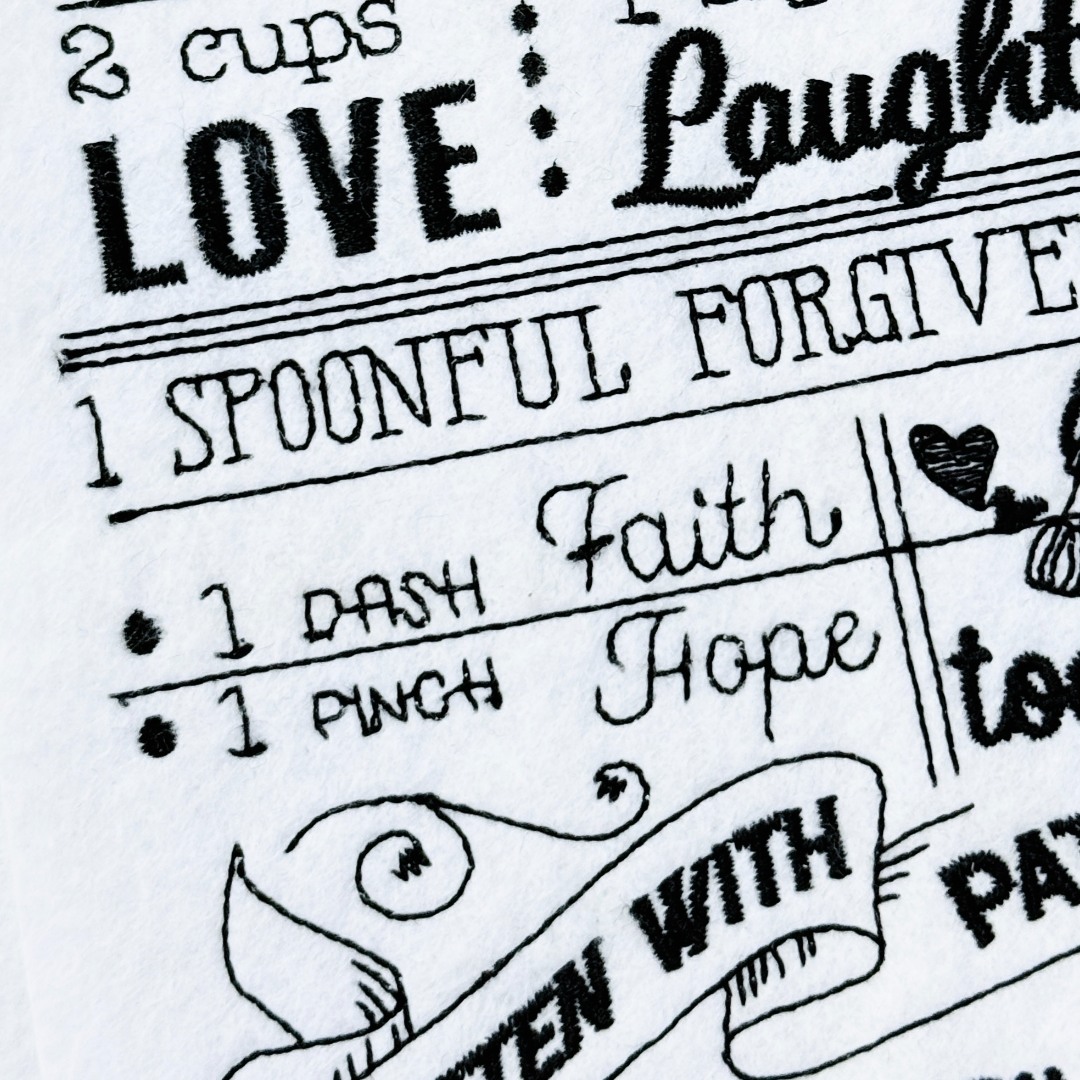 2 cups
LOVE
Laught
1 SPOONFUL FORGIVE
1 DASH Faith
1 PINCH Hope
too
TEN WITH
PAT